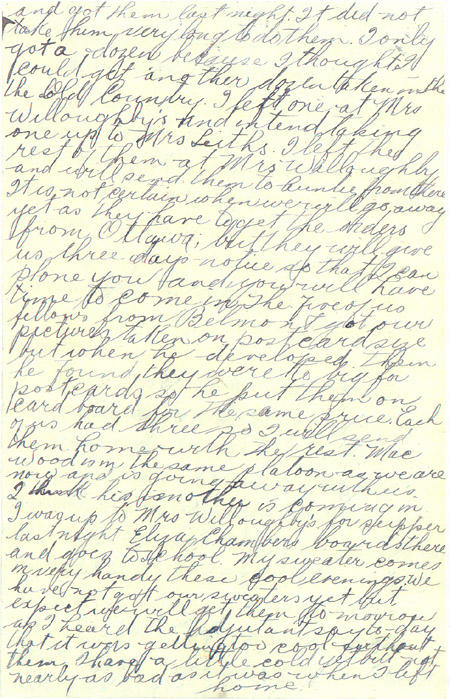 and got them last night. It did not
take them very long to do them. I only
got a dozen because I thought I
could get another dozen taken in the
the Old Country. I left one at Mrs
Willoughby's and intend taking
one up to Mrs Leiths. I left the
rest of them at Mrs Willoughby
and will send them to Auntie from there
It is not certain when we will go away
yet as they have to get the orders
from Ottawa, but they will give
us three days notice so that I can
phone you and you will have
time to come in. The five of us
fellows from Belmont got our
pictures taken on postcard size
but when he developed them
he found they were to big for
postcards so he put them on
card board for the same price. Each
of us had three so I will send
them home with the rest. Mac
Wood is in the same platoon as we are
now and is going away with us.
I think his mother is coming in
I was up to Mrs Willoughby's for supper
last night Eliza Chambers boards there
and goes to school. My sweater comes
in very handy these cool evenings. We
have not got our sweaters yet but
expect we will get them to morrow
as I heard the Adjutant say to-day
that it was getting too cool without
them. I have a little cold yet but not
nearly as bad as it was when I left
home.